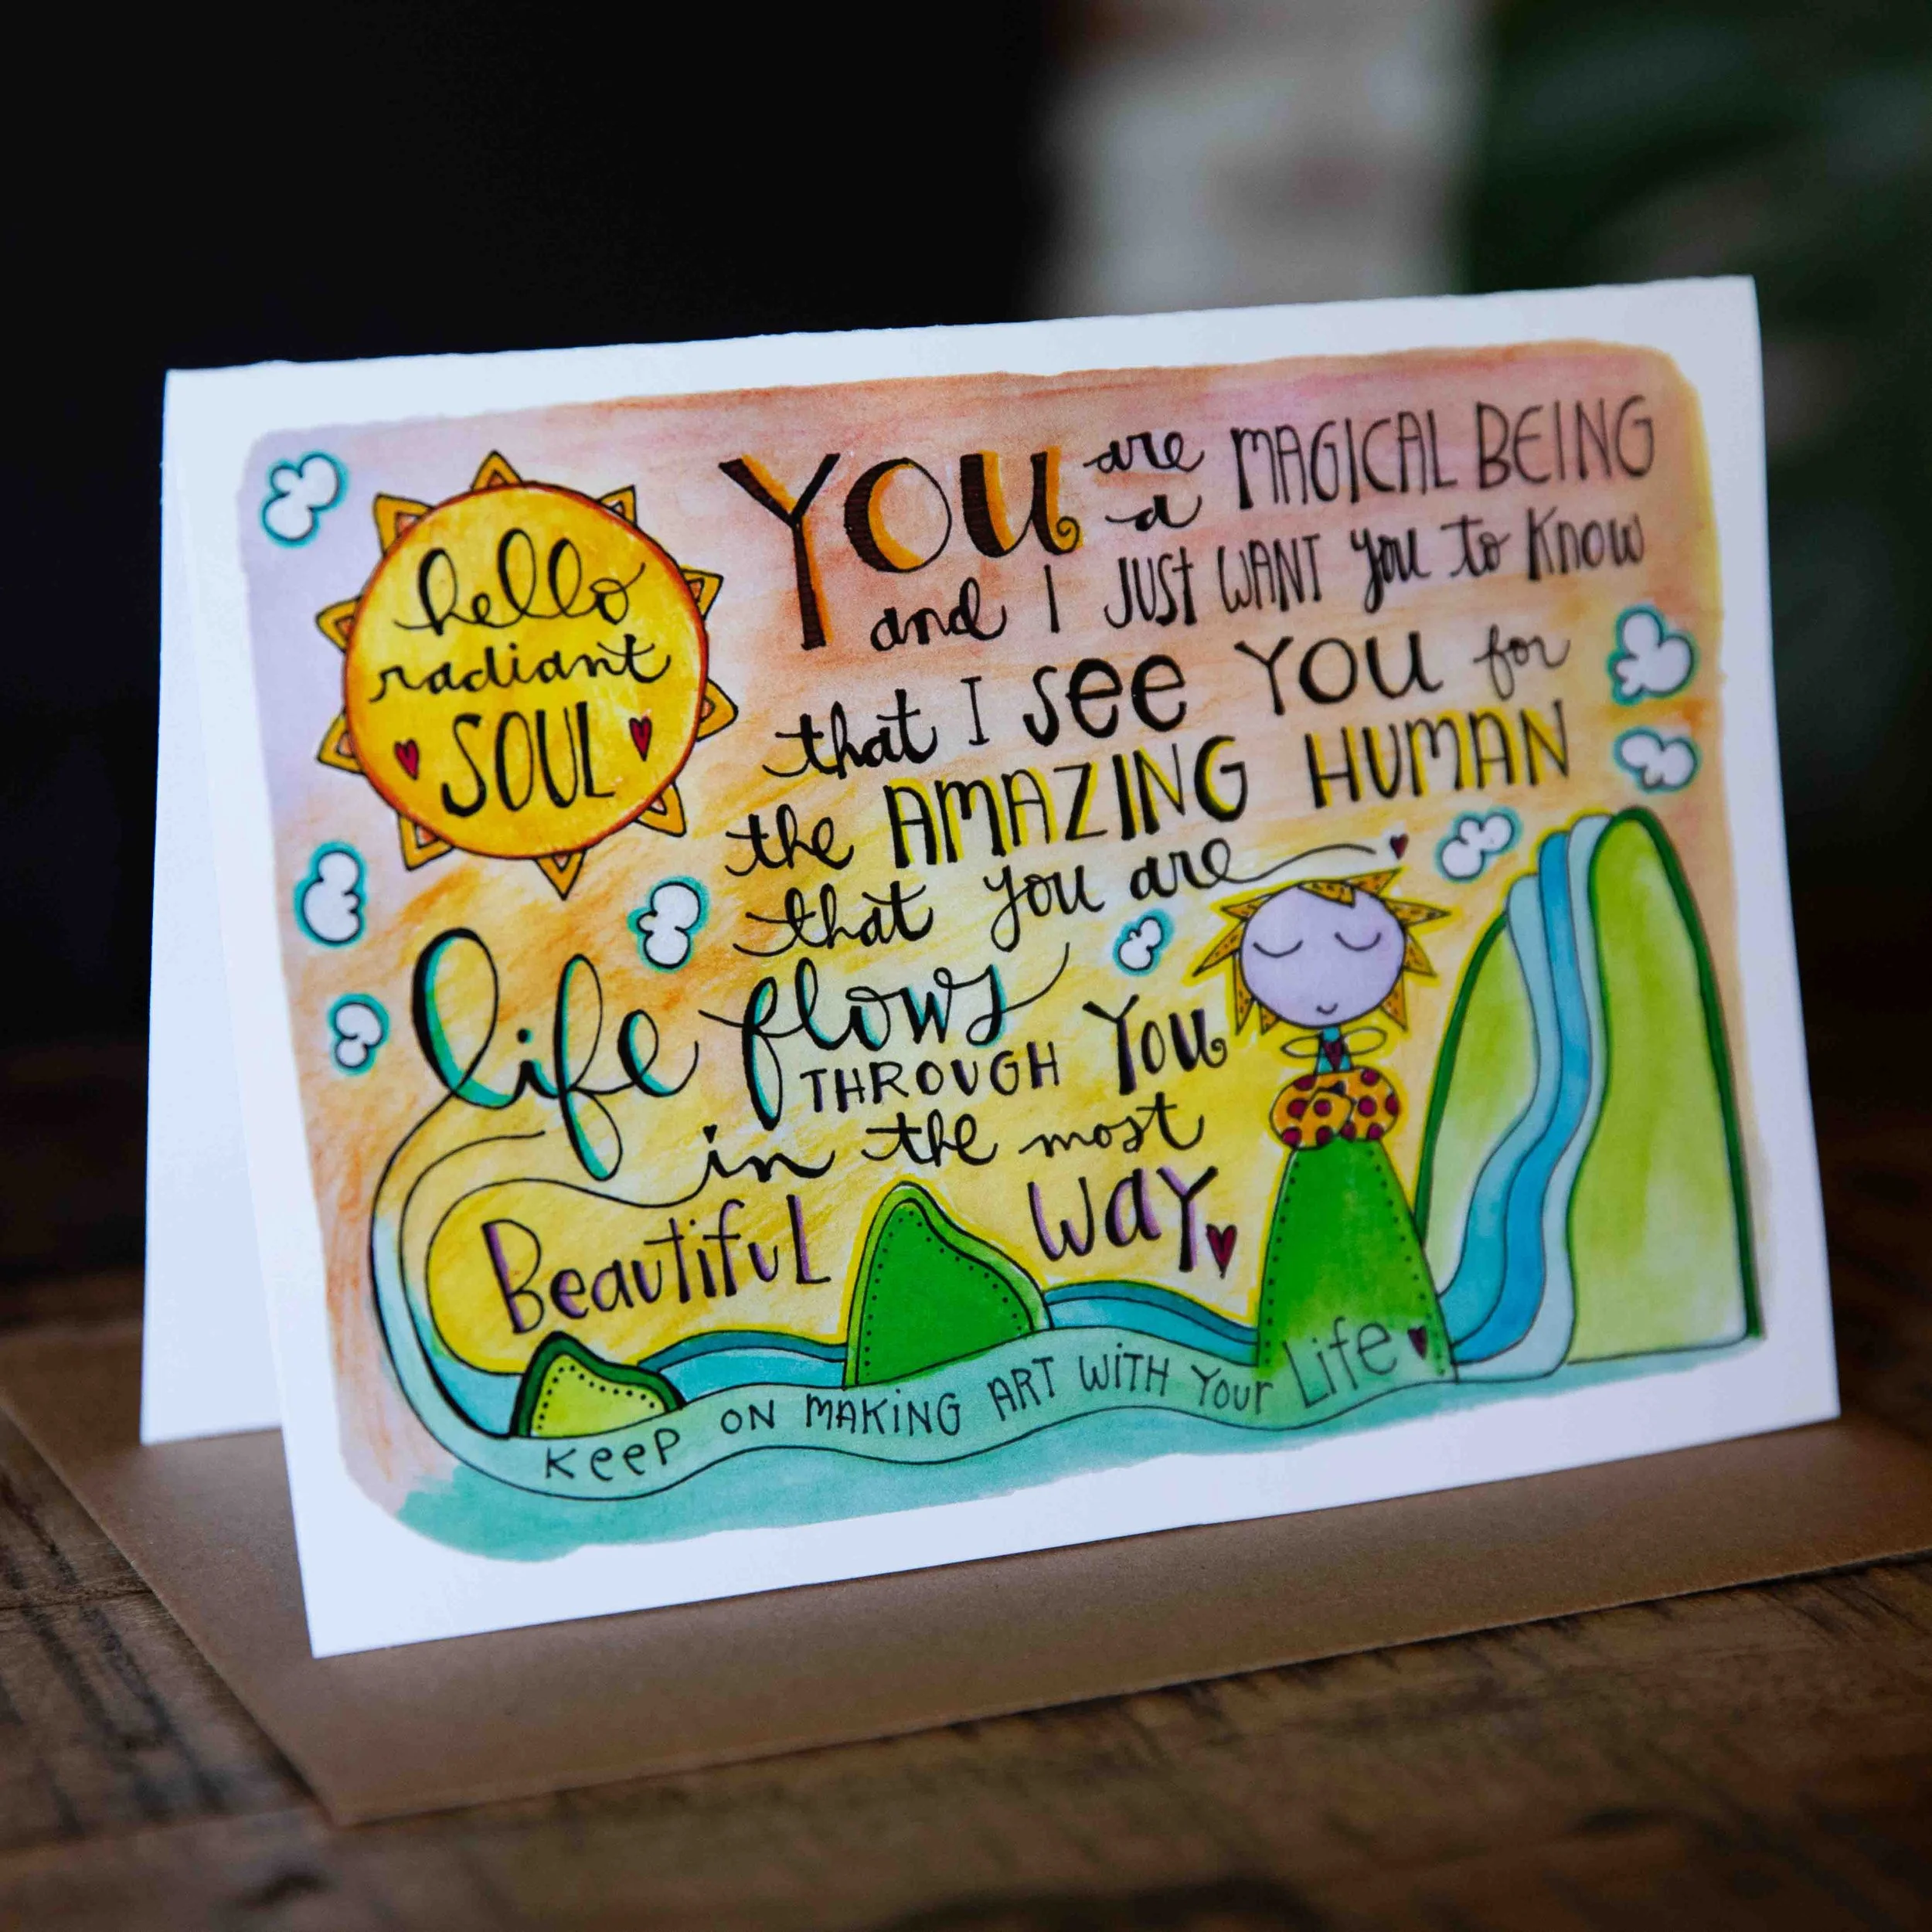 hello
radiant
SOUL
YOU are a MAGICAL BEING
and I JUST WANT you to Know
that I see YOU for
the AMAZING HUMAN
that you are
life flows
THROUGH YOU
in the most
Beautiful WAY
KEEP ON MAKING ART WITH YOUR Life